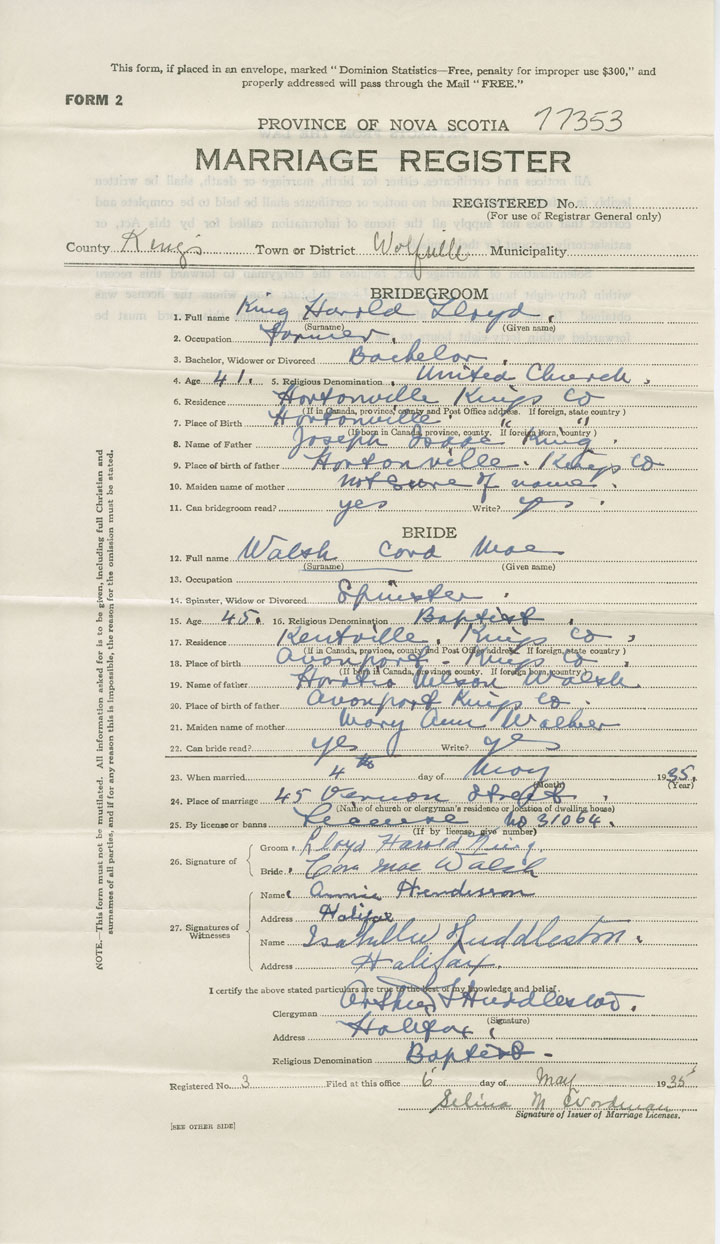 This form, if placed in an envelope, marked "Dominion Statistics—Free, penalty for improper use $300," and
properly addressed will pass through the Mail "FREE."
FORM 2
PROVINCE OF NOVA SCOTIA 77353
MARRIAGE REGISTER
REGISTERED No.
(For use of Registrar General only)
County Kings Town or District Wolfville Municipality
BRIDEGROOM
1. Full name King Harold Lloyd
(Surname) (Given name)
2. Occupation Farmer
3. Bachelor, Widower or Divorced Bachelor
4. Age 41. 5. Religious Denomination United Church
6. Residence Hortonville Kings Co
(If in Canada, province, county and Post Office address. If foreign, state country)
7. Place of Birth Hortonville " "
(If born in Canada, province, county. If foreign born, country)
8. Name of Father Joseph Isaac King
9. Place of birth of father Hortonville. Kings Co
10. Maiden name of mother not sure of name.
11. Can bridegroom read? yes Write? yes
BRIDE
12. Full name Walsh Cora Mae
(Surname) (Given name)
13. Occupation
14. Spinster, Widow or Divorced Spinster
15. Age 45. 16. Religious Denomination Baptist
17. Residence Kentville, Kings Co
(If in Canada, province, county and Post Office address. If foreign state country)
18. Place of birth Avonport - Kings Co
(If born in Canada, province, county. If foreign born, country)
19. Name of father Horatio Nelson Walsh
20. Place of birth of father Avonport Kings Co.
21. Maiden name of mother Mary Ann Walker
22. Can bride read? yes Write? yes
23. When married 4th day of May 1935.
(Month) (Year)
24. Place of marriage 45 Vernon Street
(Name of church or clergyman's residence or location of dwelling house)
25. By license or banns License No 31064.
(If by license, give number)
26. Signature of
Groom Lloyd Harold King.
Bride Cora Mae Walsh
27. Signatures of Witnesses
Name Annie Henderson
Address Halifax
Name Huddleston.
Address Halifax.
I certify the above stated particulars are true to the best of my knowledge and belief.
Clergyman Huddleston.
(Signature)
Address Halifax
Religious Denomination Baptist -
Registered No. 3 Filed at this office 6 day of May 1935
Selina M
Signature of Issuer of Marriage Licenses.
[SEE OTHER SIDE]
NOTE.—This form must not be mutilated. All information asked for is to be given, including full Christian and
surnames of all parties, and if for any reason this is impossible, the reason for the omission must be stated.